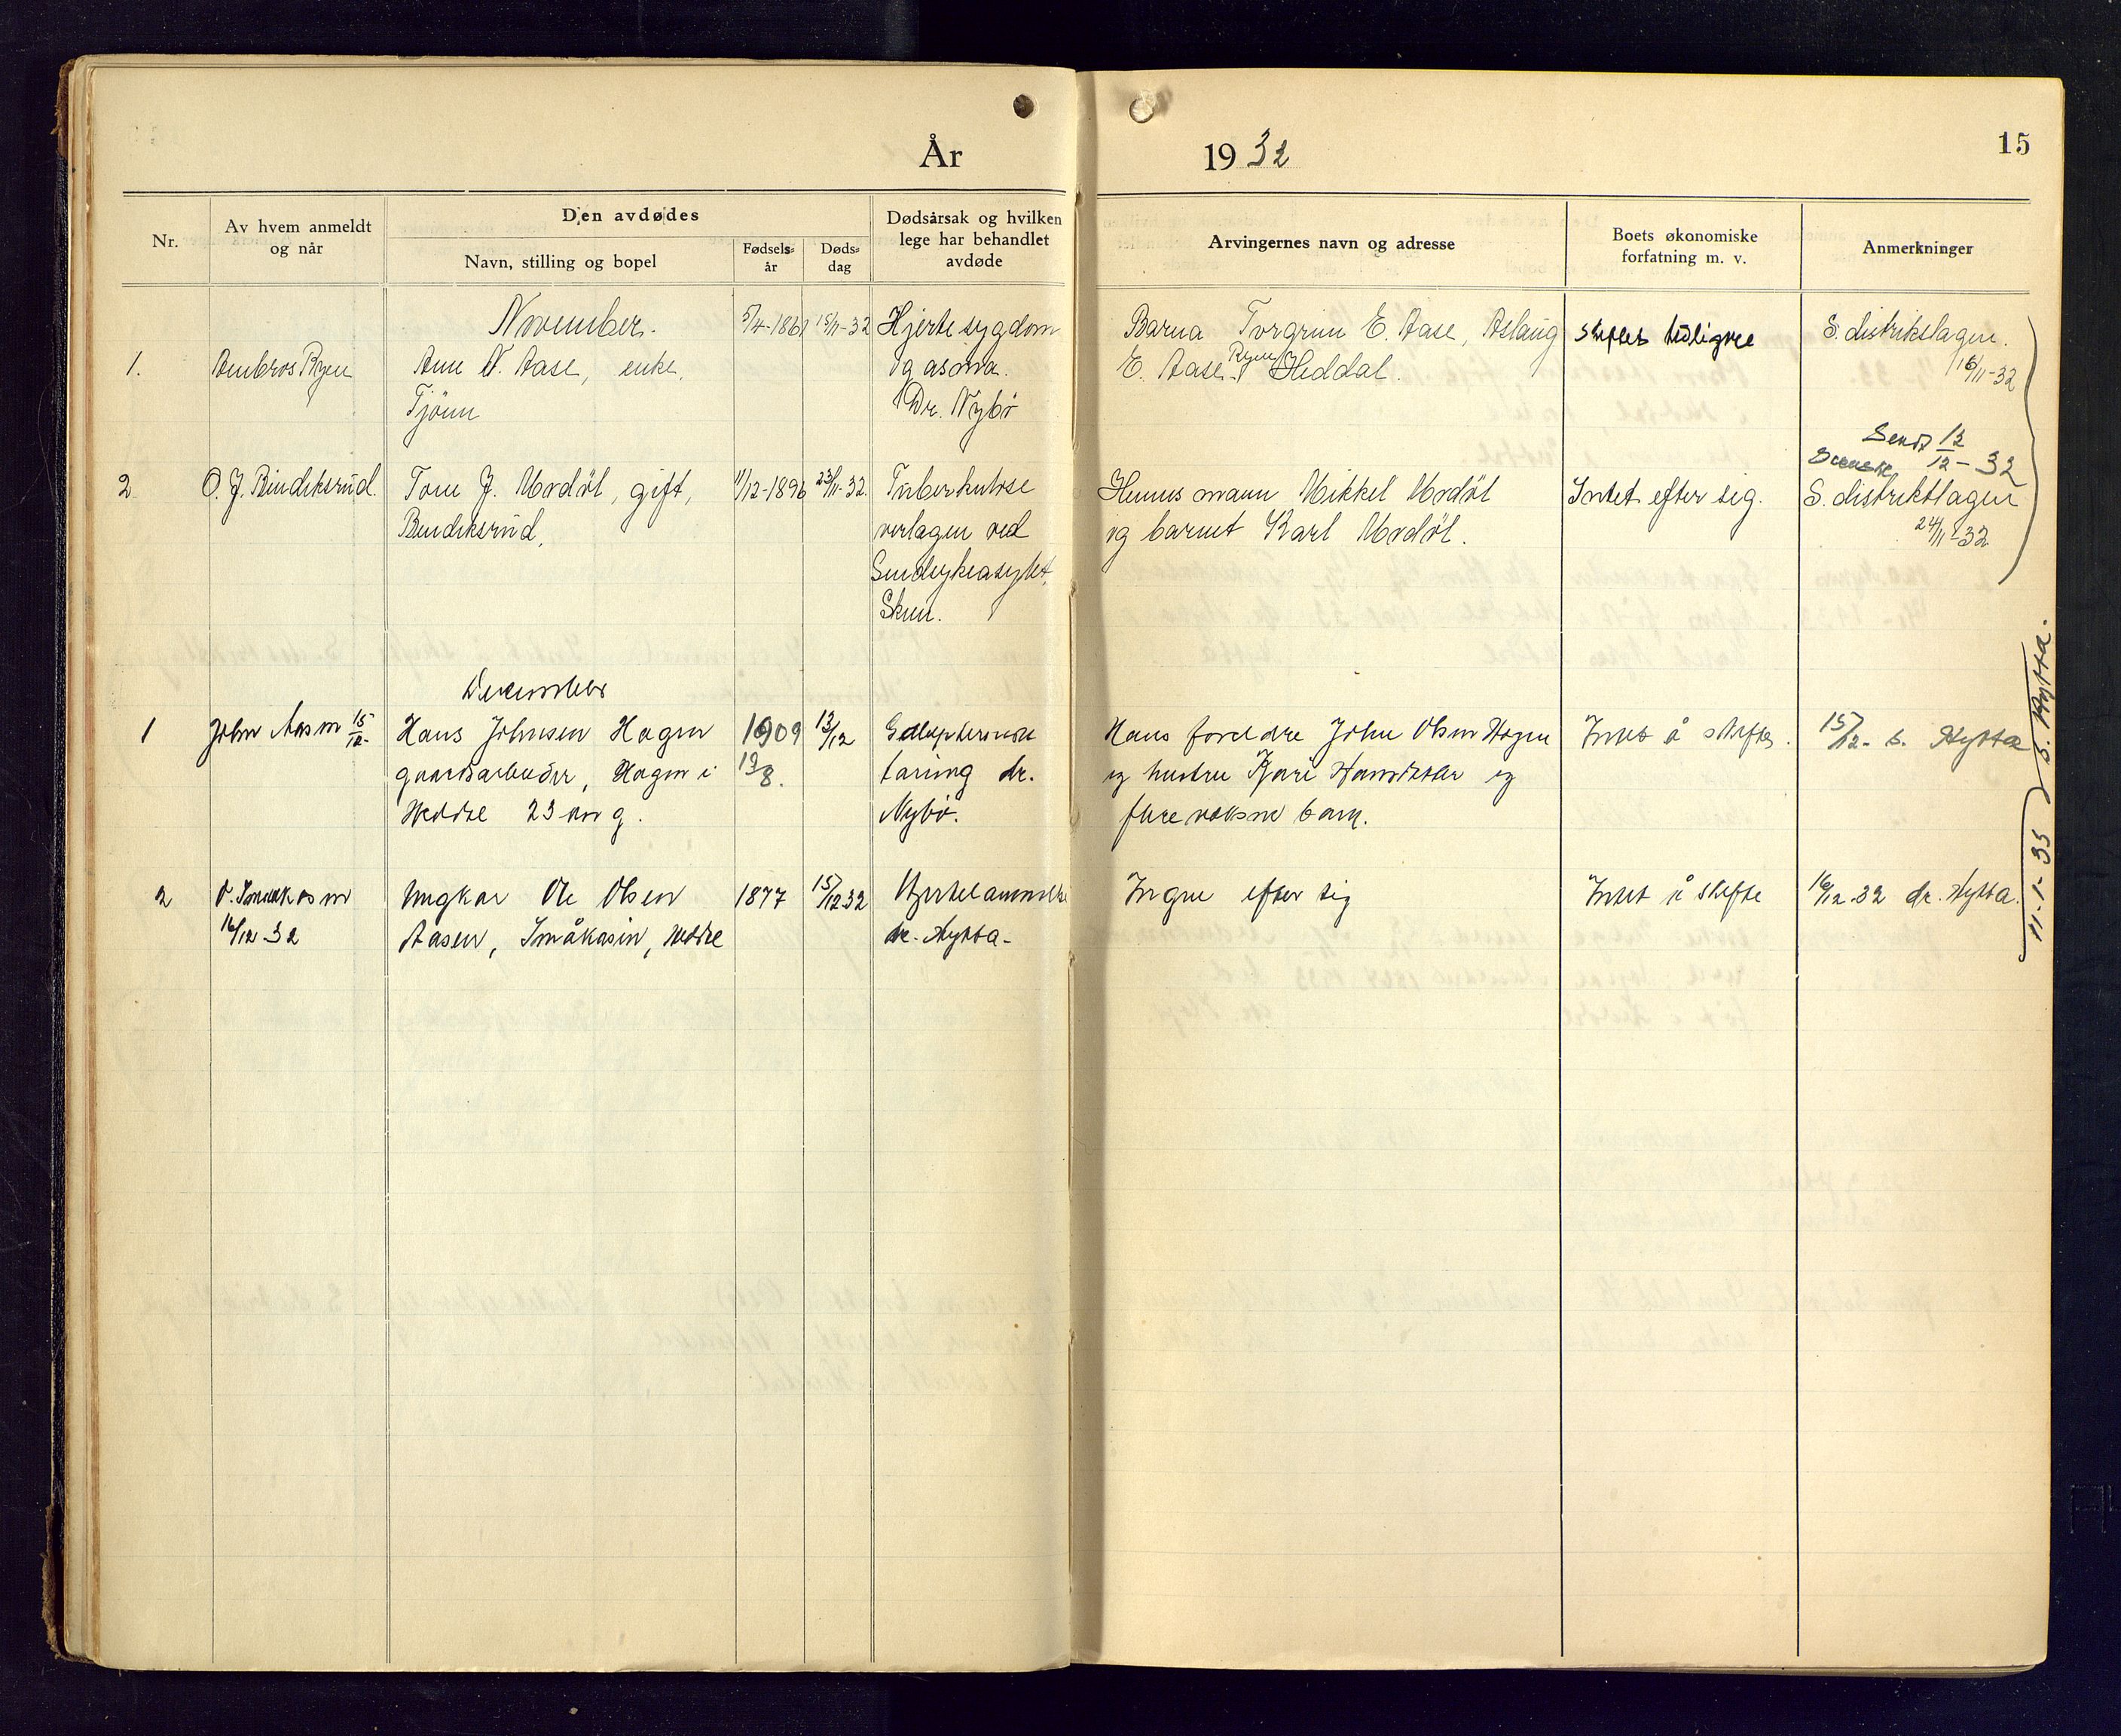 År
1932
15
Nr.
Av hvem anmeldt
og når
Den avdødes
Navn, stilling og bopel
Fødsels-
år
Døds-
dag
Dødsårsak og hvilken
lege har behandlet
avdøde
Arvingernes navn og adresse
Boets økonomiske
forfatning m. v.
Anmerkninger
November.
1.
Ambros Ryen
Ane N. Aase, enke,
Tjönn
5/4-1861
15/11-32
Hjertesygdom
og asma.
Dr. Nybö
Barna Torgrim E. Aase, Aslaug
E. Aase Ryen Heddal.
Skiftet tidligere
S. distriktslagen.
16/11-32
Sendt 13/12-32
2
O. J. Bindiksrud.
Tone J. Modöl, gift,
Bendiksrud,
11/12-1896
23/11-32.
Tuberkulose
verlagen ved
Sindsykeasylet,
Skien.
Hennes mann Mikkel Modöl
og barnet Karl Modöl.
Intet efter sig.
S. distriktslagen
24/11-32
December
1
John Aasen 15/12-
Hans Johnsen Hagen
gaardsarbeider, Hagen i
Heddal 23 aar g.
1909
13/8.
13/12
taring dr.
Nybö.
Hans foreldre John Olsen Hagen
og hustru Kjari Hansdatter og
flere voksne barn.
Intet å skifte.
15/12- s. Hytta
2
O. Smaakasin
16/12-32
Ungkar Ole Olsen
Aasen, Småkasin, Heddal
1877
15/12 32
dr. Hytta-
Ingen efter sig
Intet å skifte
16/12-32 dr. Hytta.
11-1-33 s. Hytta.